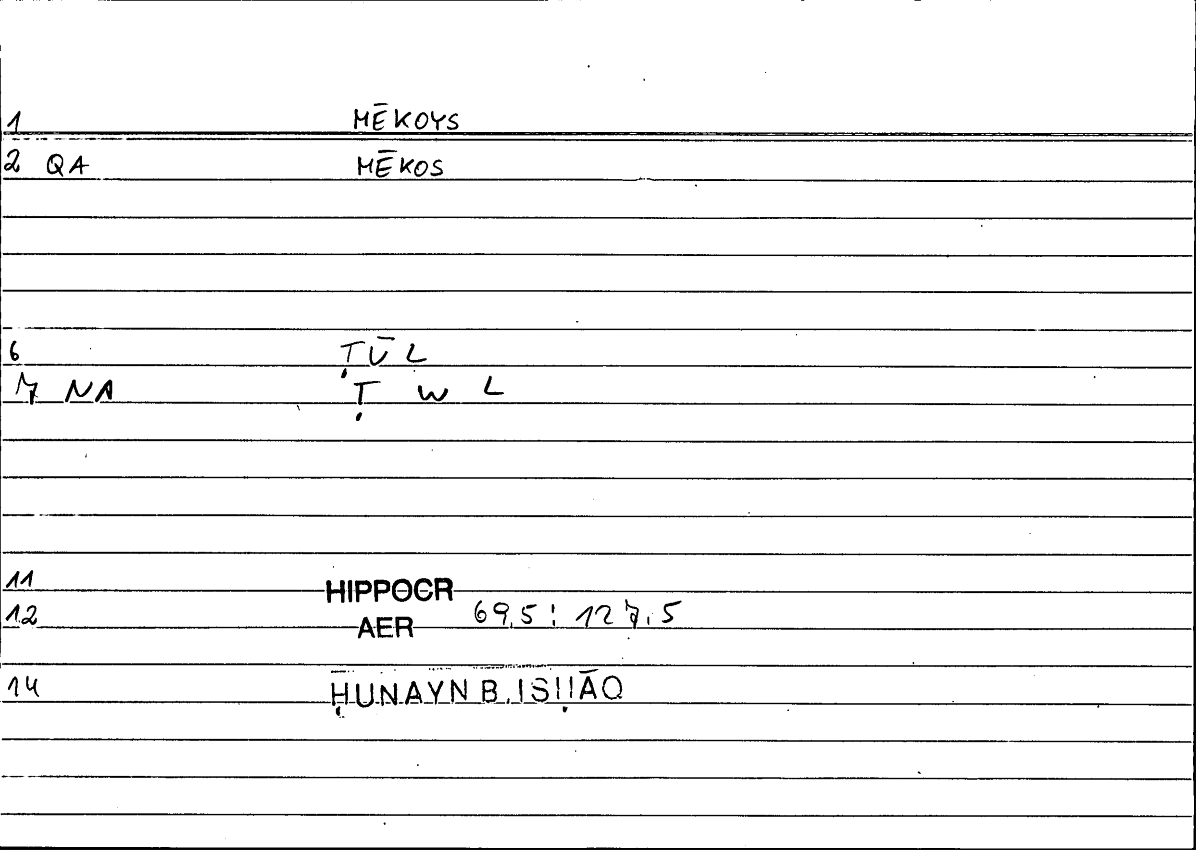 1 MĒKOYS
2 QA MĒKOS
6 ṬŪL
7 NA Ṭ W L
11 HIPPOCR
12 AER 69,5 : 127,5
14 ḤUNAYN B. ISḤĀQ